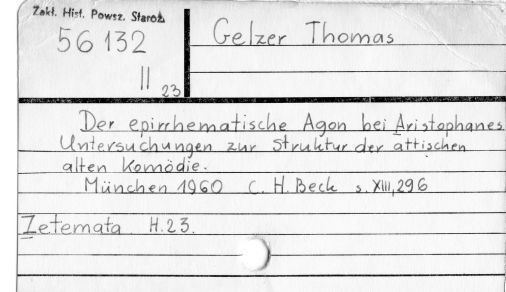 Zakł. Hist. Powsz. Staroż.
56132
II 23
Gelzer Thomas
Der epirrhematische Agon bei Aristophanes.
Untersuchungen zur Struktur der attischen
alten Komödie.
München 1960 C. H. Beck s. XIII, 296
Zetemata H. 23.